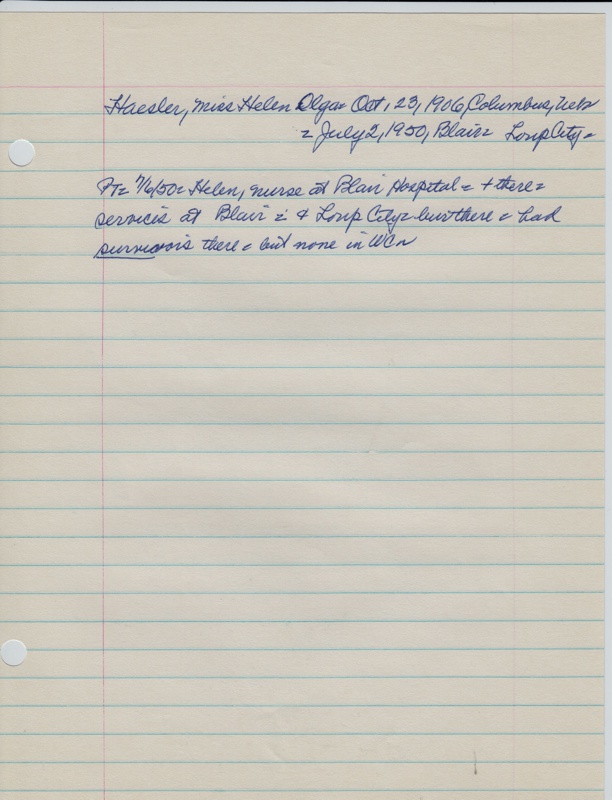 Haesler, Miss Helen Olga= Oct, 23, 1906, Columbus, Neb
= July 2, 1950, Blair= Loup City=
PT= 7/6/50= Helen, nurse at Blair Hospital= + there=
services at Blair = & Loup City= bur there = had
survivors there = but none in WCn